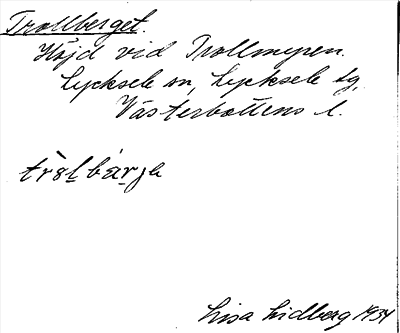 Trollberget.
Höjd vid Trollmyren.
Lycksele sn, Lycksele lg,
Västerbottens l.
tròlbárje
Lisa Lidberg 1934